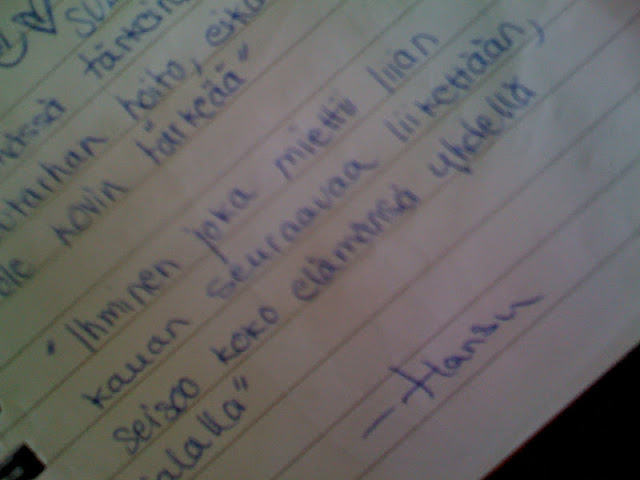 tärkein
hoito, eikä
ole kovin tärkeää"
"Ihminen joka miettii liian
kauan seuraavaa liikettään,
seisoo koko elämänsä yhdellä
jalalla"
- Hansu